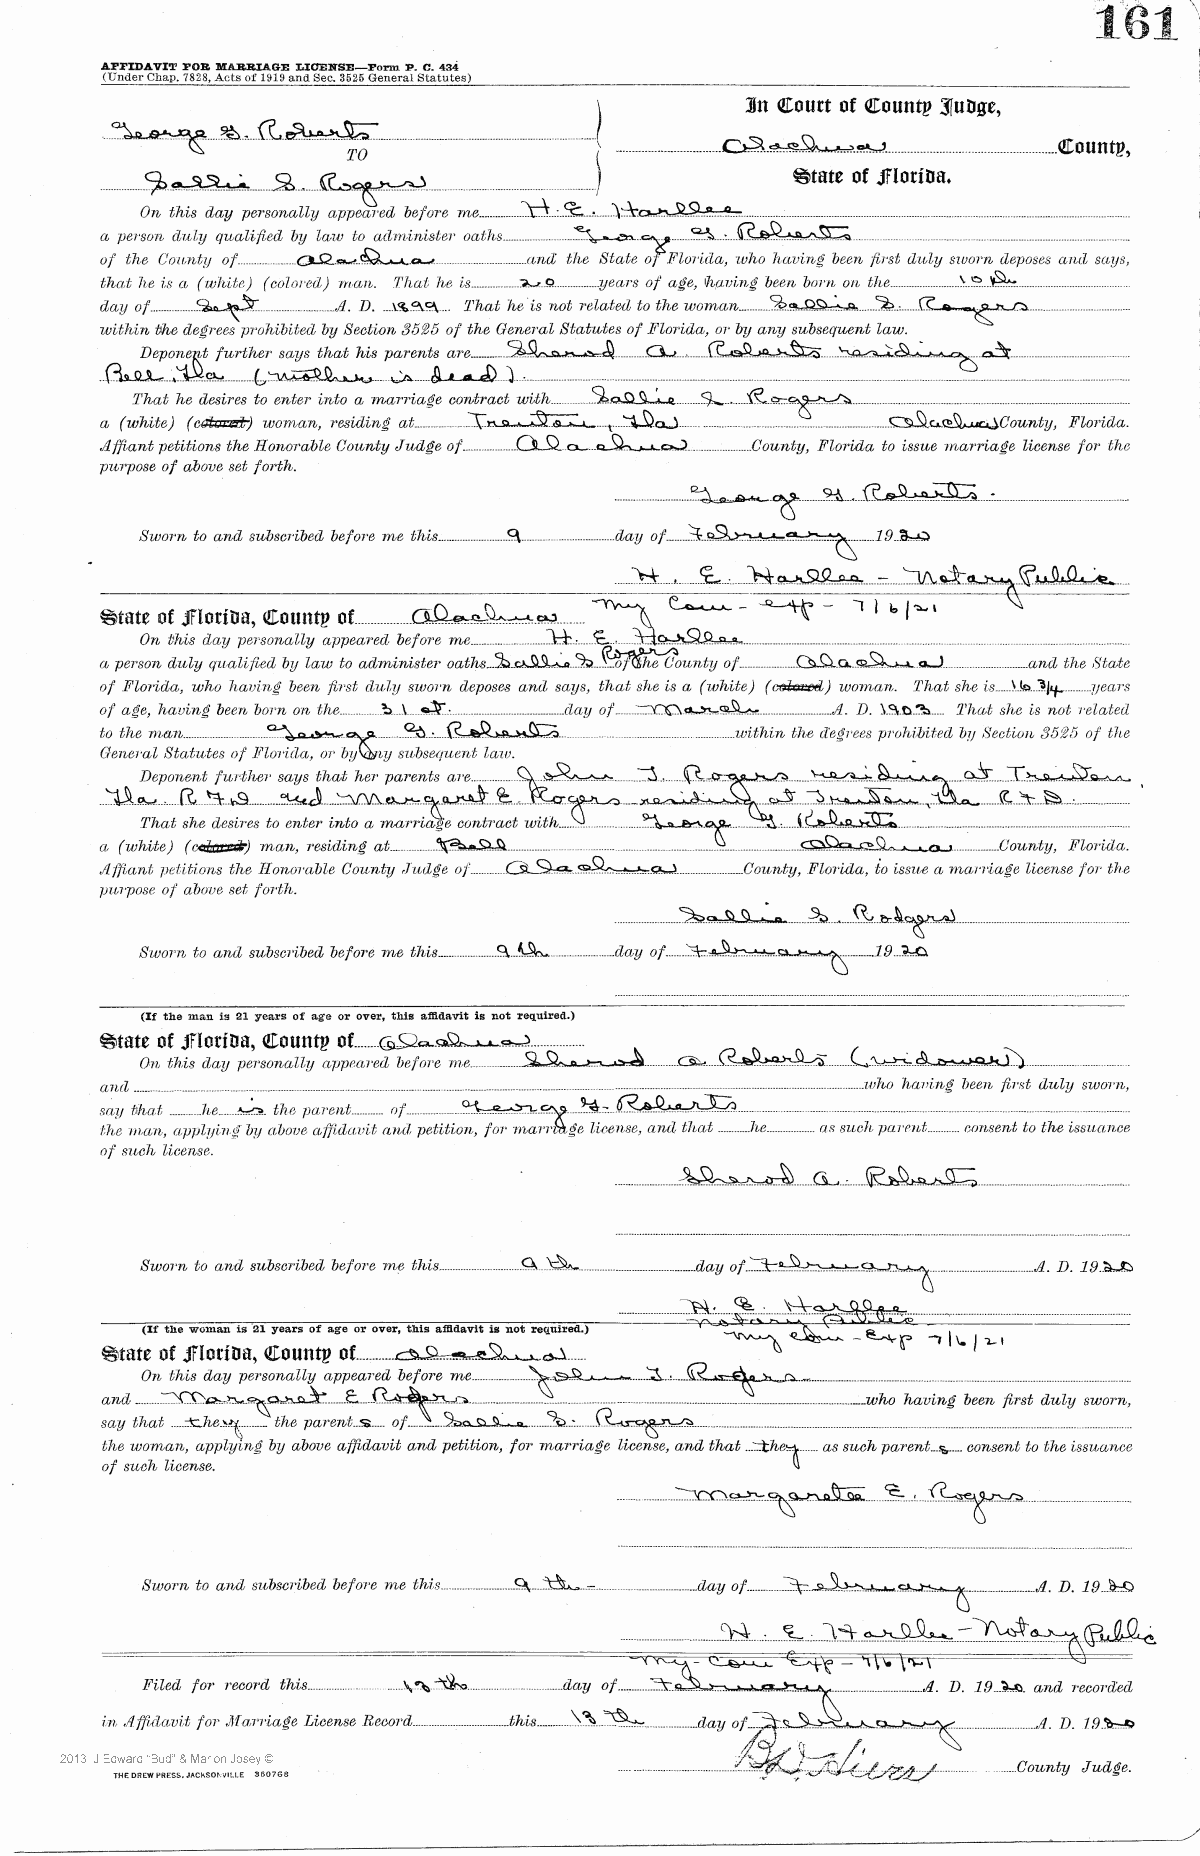 161
AFFIDAVIT FOR MARRIAGE LICENSE—Form P. C. 434
(Under Chap. 7828, Acts of 1919 and Sec. 3525 General Statutes)
George G. Roberts
TO
Sallie S. Rogers
In Court of County Judge,
Alachua County,
State of Florida.
On this day personally appeared before me H. E. Harllee
a person duly qualified by law to administer oaths George G. Roberts
of the County of Alachua and the State of Florida, who having been first duly sworn deposes and says,
that he is a (white) (colored) man. That he is 20 years of age, having been born on the 10th
day of Sept A. D. 1899. That he is not related to the woman Sallie S. Rogers
within the degrees prohibited by Section 3525 of the General Statutes of Florida, or by any subsequent law.
Deponent further says that his parents are Sherod A. Roberts residing at
Bell, Fla (mother is dead).
That he desires to enter into a marriage contract with Sallie S. Rogers
a (white) (colored) woman, residing at Trenton, Fla Alachua County, Florida.
Affiant petitions the Honorable County Judge of Alachua County, Florida to issue marriage license for the
purpose of above set forth.
George G. Roberts.
Sworn to and subscribed before me this 9 day of February 1920
H. E. Harllee - Notary Public
My Com - exp - 7/6/21
State of Florida, County of Alachua
On this day personally appeared before me H. E. Harllee
a person duly qualified by law to administer oaths Sallie S Rogers of the County of Alachua and the State
of Florida, who having been first duly sworn deposes and says, that she is a (white) (colored) woman. That she is 16 3/4 years
of age, having been born on the 31 st. day of March A. D. 1903 That she is not related
to the man George G. Roberts within the degrees prohibited by Section 3525 of the
General Statutes of Florida, or by any subsequent law.
Deponent further says that her parents are John T. Rogers residing at Trenton
Fla. R F D and Margaret E Rogers residing at Trenton, Fla R F D.
That she desires to enter into a marriage contract with George G. Roberts
a (white) (colored) man, residing at Bell Alachua County, Florida.
Affiant petitions the Honorable County Judge of Alachua County, Florida, to issue a marriage license for the
purpose of above set forth.
Sallie S. Rodgers
Sworn to and subscribed before me this 9th day of February 1920
(If the man is 21 years of age or over, this affidavit is not required.)
State of Florida, County of Alachua
On this day personally appeared before me Sherod A Roberts (widower)
and who having been first duly sworn,
say that he is the parent of George G. Roberts
the man, applying by above affidavit and petition, for marriage license, and that he as such parent consent to the issuance
of such license.
Sherod A. Roberts
Sworn to and subscribed before me this 9th day of February A. D. 1920
H. E. Harllee
Notary Public
(If the woman is 21 years of age or over, this affidavit is not required.)
My Com - Exp 7/6/21
State of Florida, County of Alachua
On this day personally appeared before me John T. Rogers
and Margaret E Rogers who having been first duly sworn,
say that they the parents of Sallie S. Rogers
the woman, applying by above affidavit and petition, for marriage license, and that they as such parents consent to the issuance
of such license.
Margaretee E. Rogers
Sworn to and subscribed before me this 9th - day of February A. D. 1920
H. E. Harllee - Notary Public
My - Com Exp - 7/6/21
Filed for record this 13th day of February A. D. 1920 and recorded
in Affidavit for Marriage License Record this 13th day of February A. D. 1920
County Judge.
2013 J Edward "Bud" & Marion Josey ©
THE DREW PRESS, JACKSONVILLE 360768